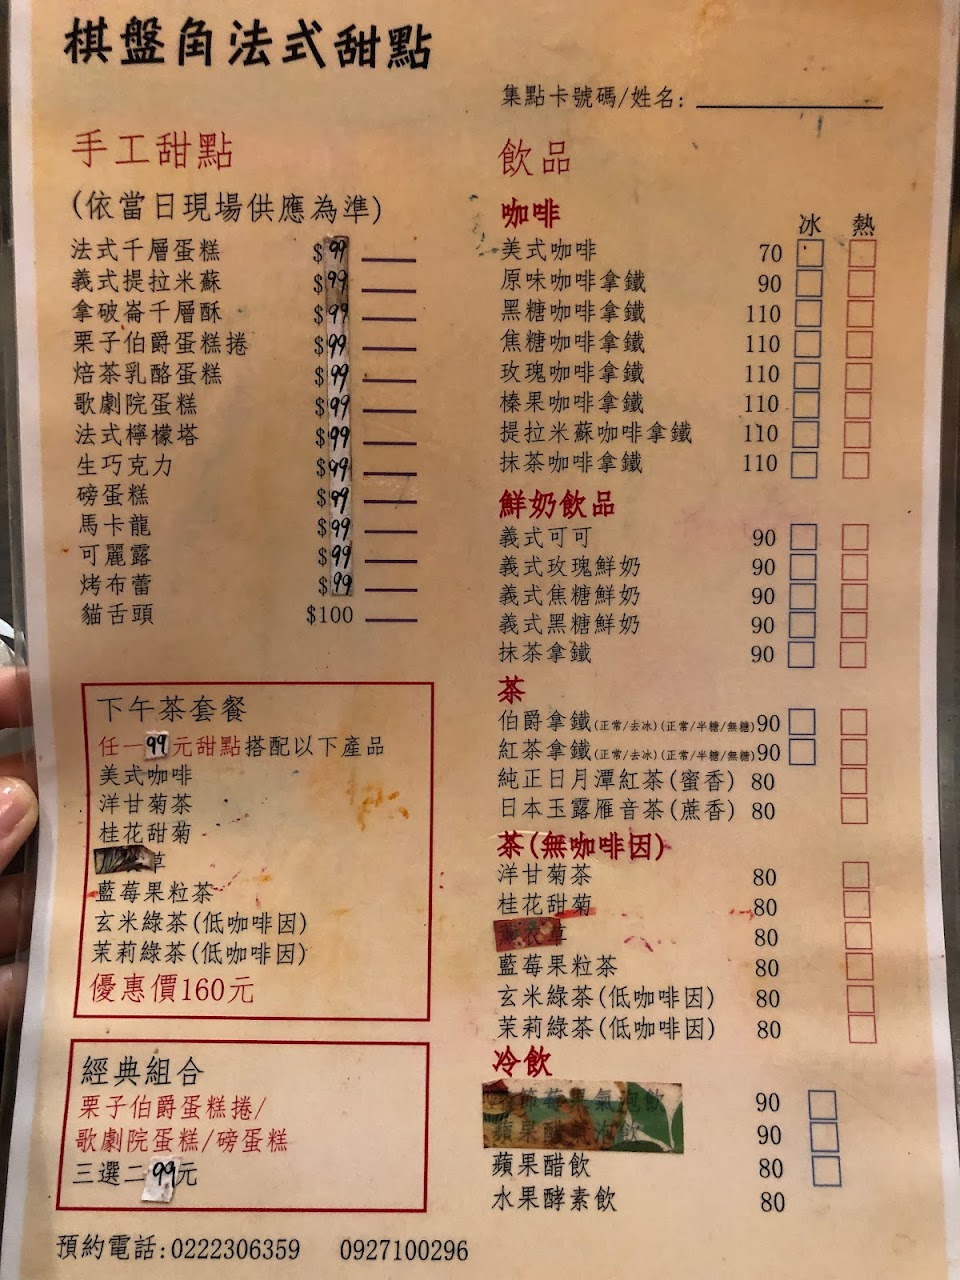 棋盤角法式甜點
集點卡號碼/姓名:
手工甜點
(依當日現場供應為準)
法式千層蛋糕 $99
義式提拉米蘇 $99
拿破崙千層酥 $99
栗子伯爵蛋糕捲 $99
焙茶乳酪蛋糕 $99
歌劇院蛋糕 $99
法式檸檬塔 $99
生巧克力 $99
磅蛋糕 $99
馬卡龍 $99
可麗露 $99
烤布蕾 $99
貓舌頭 $100
下午茶套餐
任一99元甜點搭配以下產品
美式咖啡
洋甘菊茶
桂花甜菊
草
藍莓果粒茶
玄米綠茶(低咖啡因)
茉莉綠茶(低咖啡因)
優惠價160元
經典組合
栗子伯爵蛋糕捲/
歌劇院蛋糕/磅蛋糕
三選二99元
飲品
咖啡 冰 熱
美式咖啡 70
原味咖啡拿鐵 90
黑糖咖啡拿鐵 110
焦糖咖啡拿鐵 110
玫瑰咖啡拿鐵 110
榛果咖啡拿鐵 110
提拉米蘇咖啡拿鐵 110
抹茶咖啡拿鐵 110
鮮奶飲品
義式可可 90
義式玫瑰鮮奶 90
義式焦糖鮮奶 90
義式黑糖鮮奶 90
抹茶拿鐵 90
茶
伯爵拿鐵(正常/去冰)(正常/半糖/無糖)90
紅茶拿鐵(正常/去冰)(正常/半糖/無糖)90
純正日月潭紅茶(蜜香) 80
日本玉露雁音茶(蔗香) 80
茶(無咖啡因)
洋甘菊茶 80
桂花甜菊 80
草 80
藍莓果粒茶 80
玄米綠茶(低咖啡因) 80
茉莉綠茶(低咖啡因) 80
冷飲
氣泡飲 90
飲 90
蘋果醋飲 80
水果酵素飲 80
預約電話:0222306359 0927100296